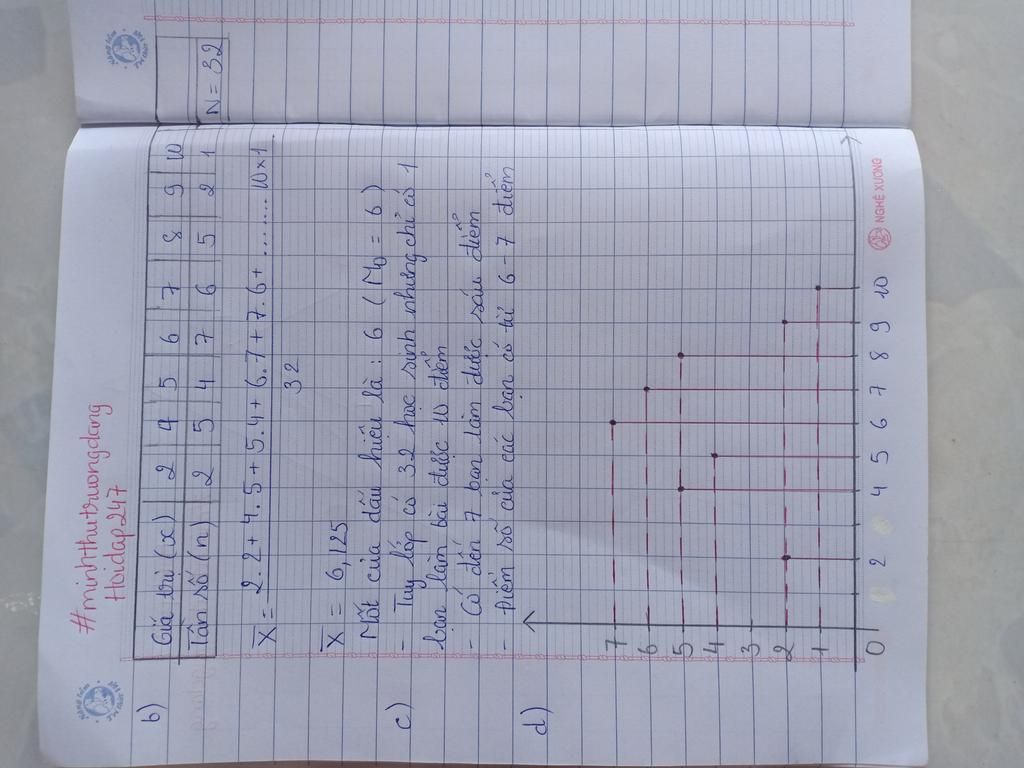 #minhthutruongdang
Hoidap247
b)
Giá trị (x) 2 4 5 6 7 8 9 10
Tần số (n) 2 5 4 7 6 5 2 1 N = 32
X̅ = 2.2 + 4.5 + 5.4 + 6.7 + 7.6 + ........ 10 x 1
32
X̅ = 6,125
Mốt của dấu hiệu là : 6 ( M₀ = 6 )
c) - Tuy lớp có 32 học sinh nhưng chỉ có 1
bạn làm bài được 10 điểm
- Có đến 7 bạn làm được sáu điểm
- Điểm số của các bạn có từ 6 - 7 điểm
d)
7
6
5
4
3
2
1
O 2 4 5 6 7 8 9 10
NGHỆ XƯƠNG